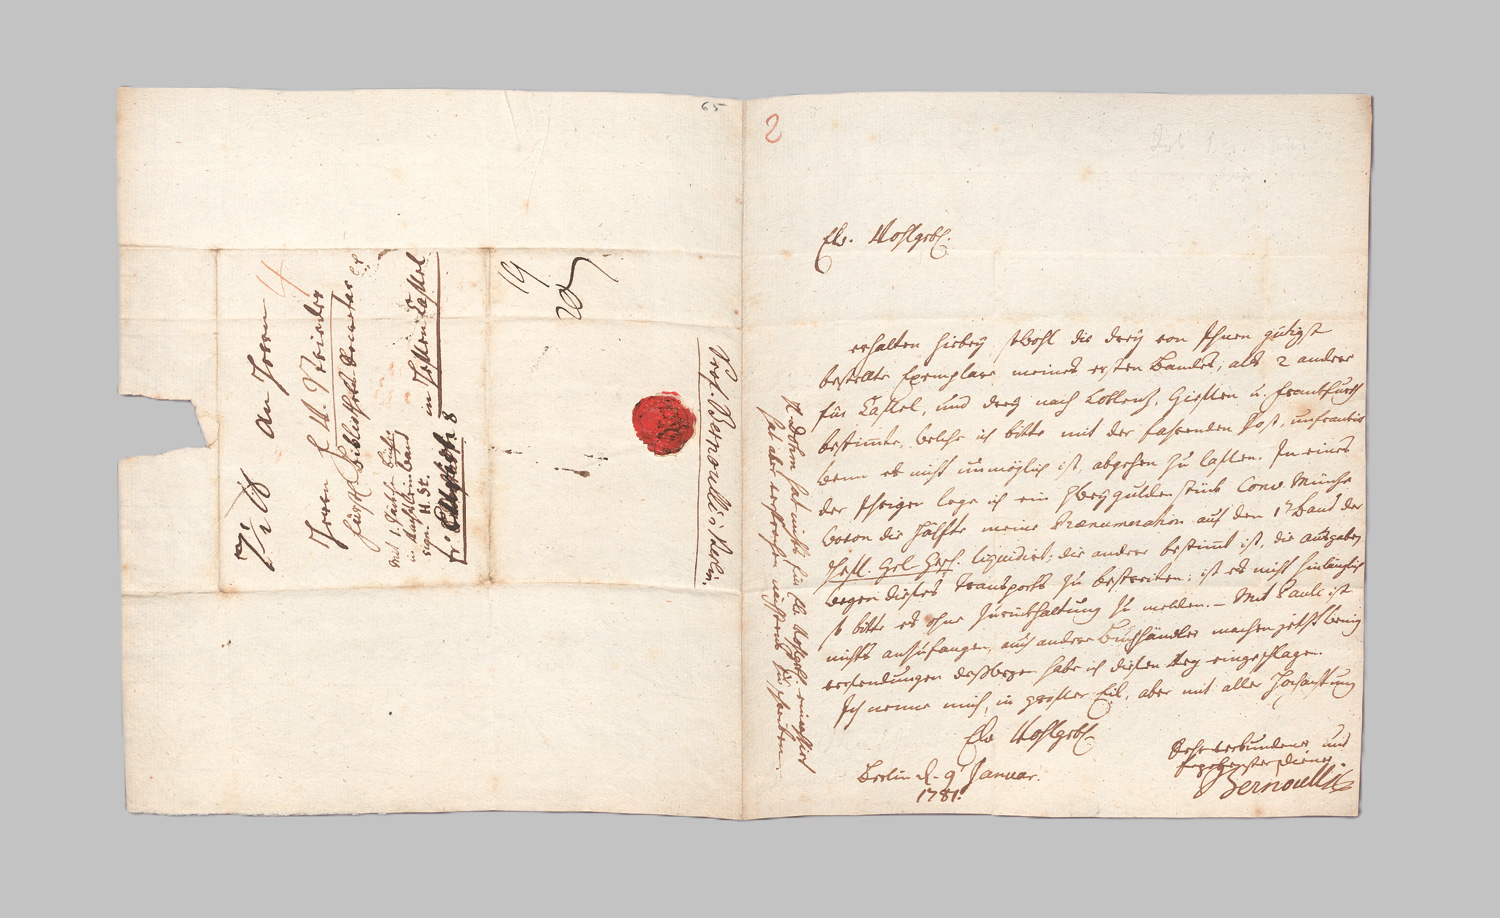 65
2
Ew. Wohlgebl.
erhalten hierbey sowohl die drey von Ihnen gütigst
bestellte Exemplare meines ersten Bandes, als 2 andere
für Cassel, und drey nach Coblenz, Giessen u. Frankfurth
bestimmte, welche ich bitte mit der fahrenden Post, unfrankirt
wenn es nicht unmöglich ist, abgehen zu lassen. In eines
der Ihrigen lege ich ein Zweyguldenstück Conv. Münze
wovon die Hälfte meine Praenumeration auf den 1n Band der
Hess. Gel. Gesch. liquidirt; die andere bestimmt ist, die Ausgaben
wegen dieses Transports zu bestreiten; ist es nicht hinlänglich
so bitte es ohne Zurückhaltung zu melden. – Mit Pauli ist
nichts anzufangen, auch andere Buchhändler machen jetzt wenig
versendungen desswegen habe ich diesen Weg eingeschlagen.
Ich nenne mich, in grosser Eil, aber mit aller Hochachtung
Ew Wohlgebl.
Berlin d. 9 Januar.
1781.
Sehr verbundener und
ergebenster Diener
Bernoulli
H. Dohm hat nichts für Ew. Wohlgebl.
hat aber versprochen nächstens zu schreiben.
An Herrn
Herrn
fürstl. Bibliotheks Secretar
in Hessen Cassel
mit 1. Packt. Bücher
in Wachsleinwand
sign. H. St.
fr.
8
4
19
Prof. Bernoulli in Berlin.